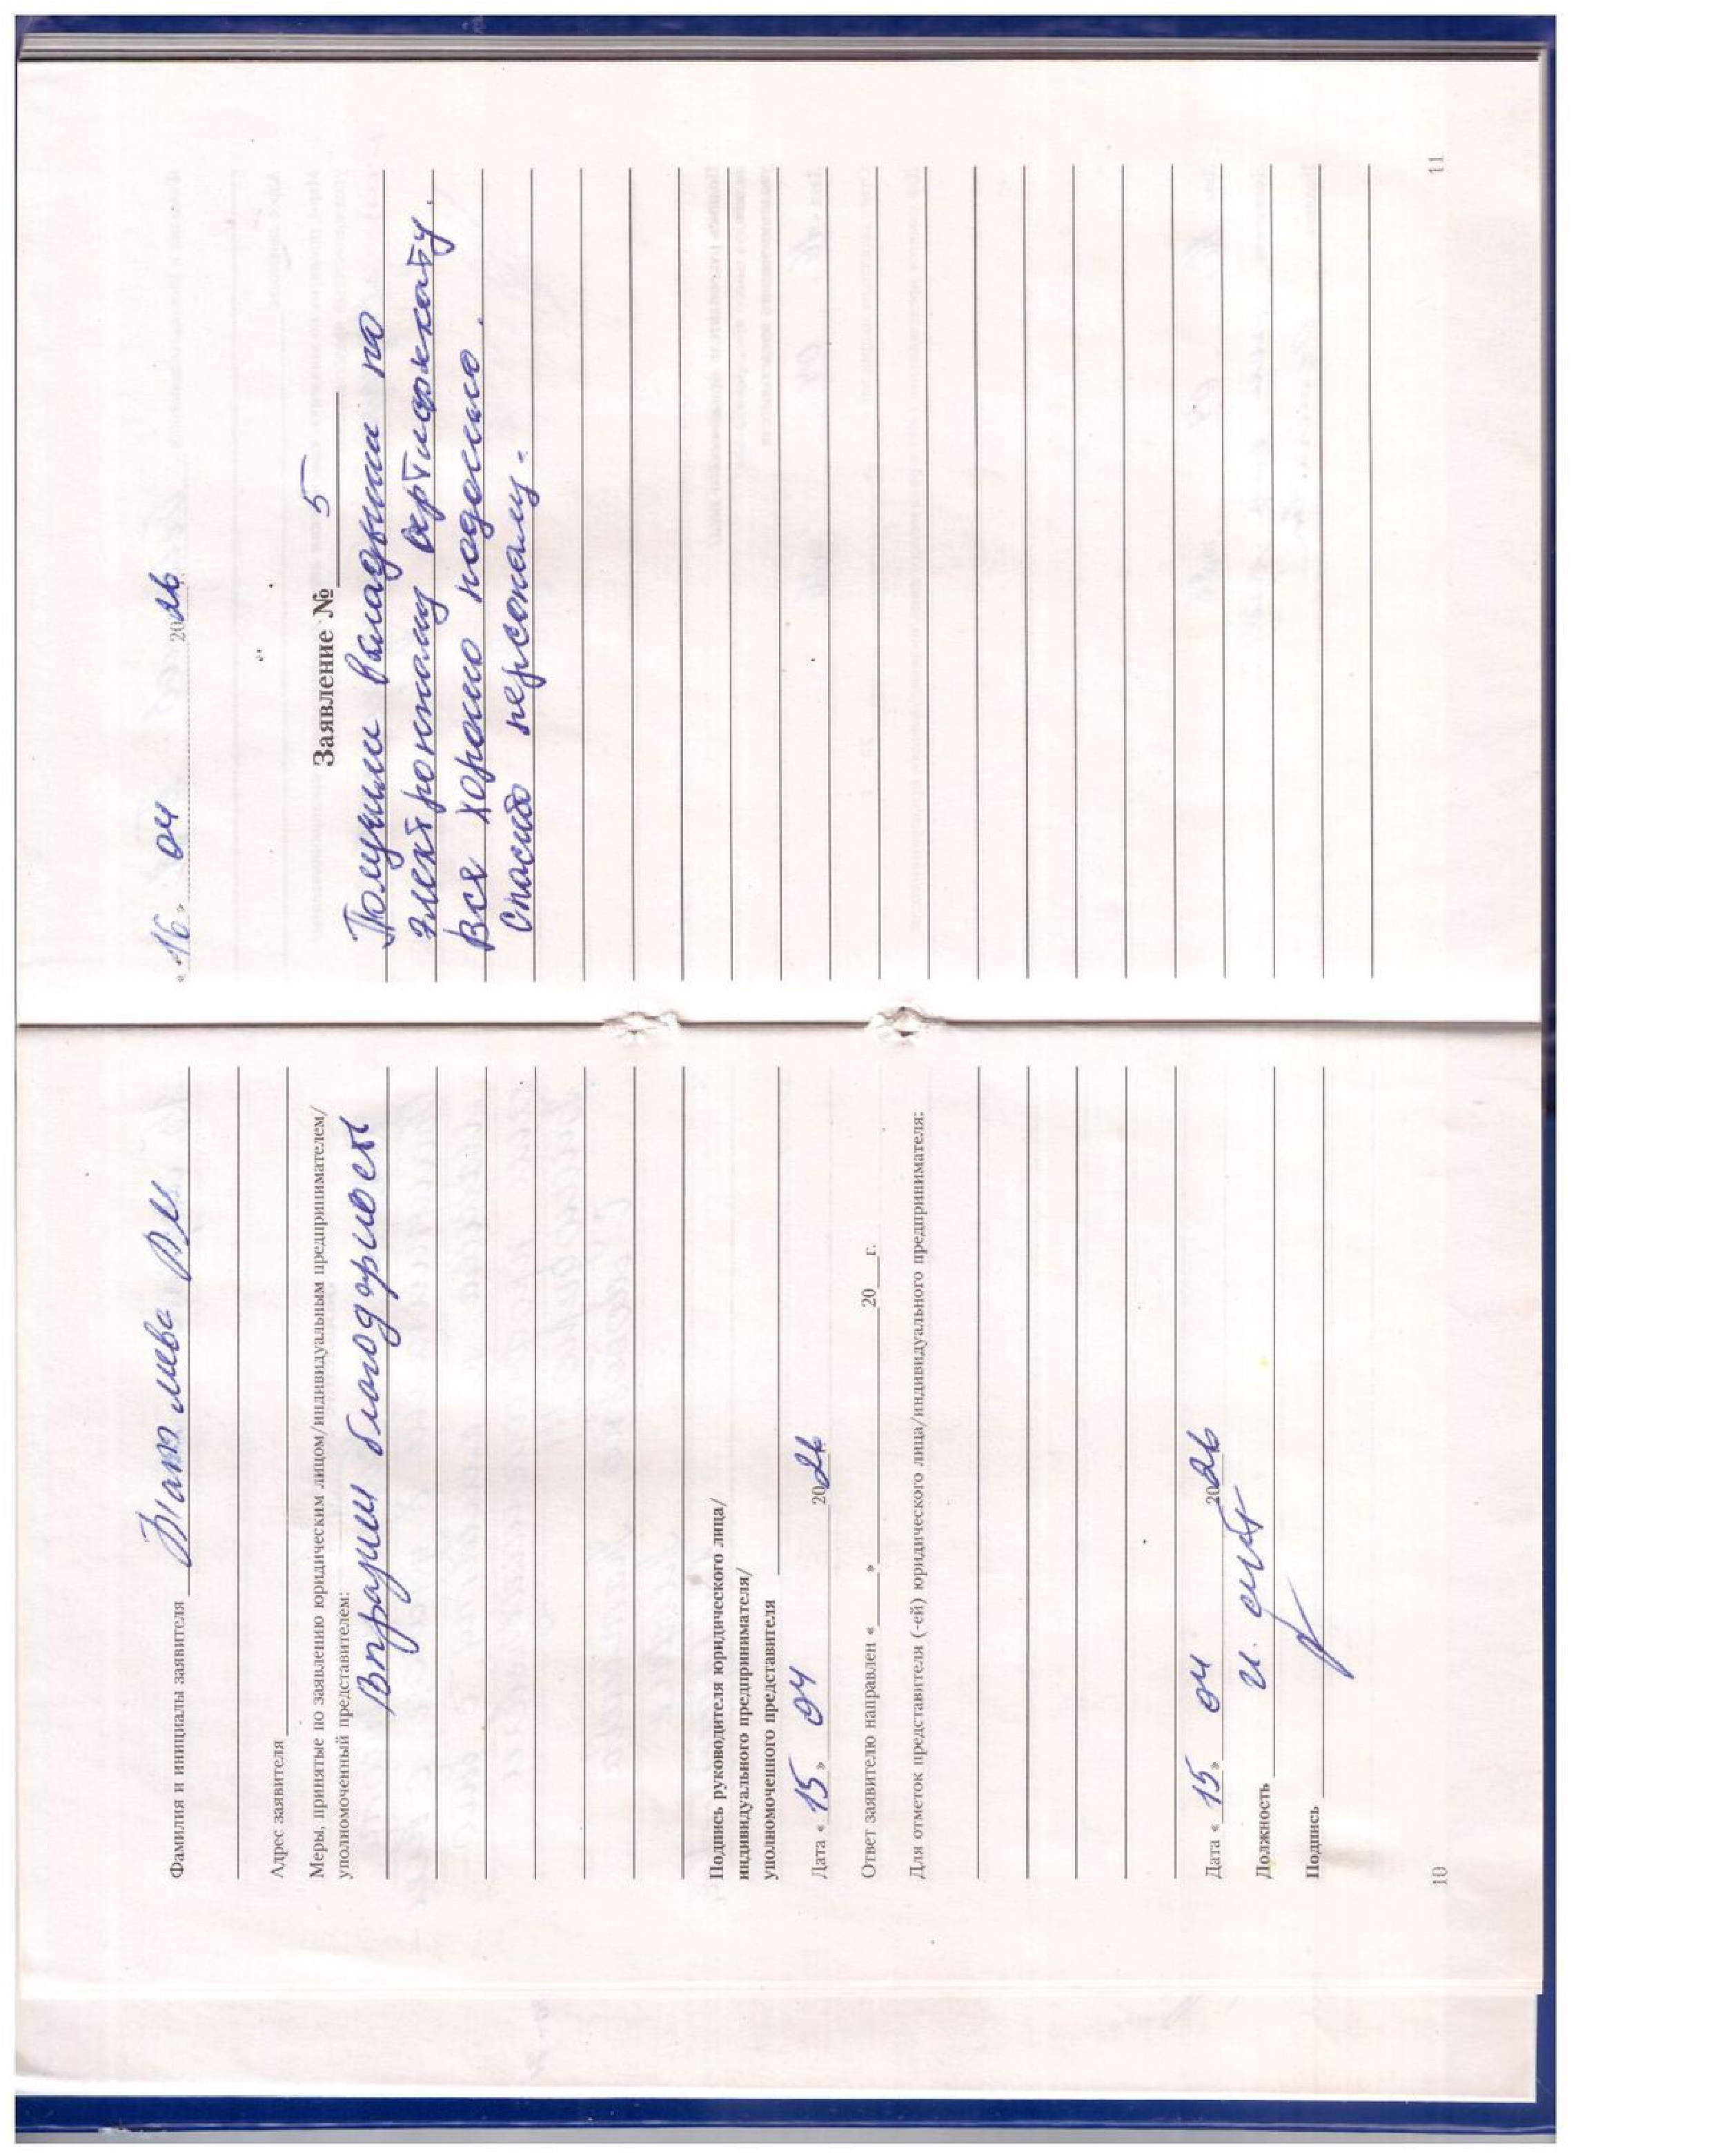 Фамилия и инициалы заявителя
Адрес заявителя
Меры, принятые по заявлению юридическим лицом/индивидуальным предпринимателем/
уполномоченный представителем:
Выразим благодарность
Подпись руководителя юридического лица/
индивидуального предпринимателя/
уполномоченного представителя
Дата « 15 » 04 2026
Ответ заявителю направлен « » 20 г.
Для отметок представителя (-ей) юридического лица/индивидуального предпринимателя:
Дата « 15 » 04 2026
Должность
Подпись
10
« 16 » 04 2026
Заявление № 5
Получили по
электронному сертификату.
Все хорошо подошло.
Спасибо персоналу.
11